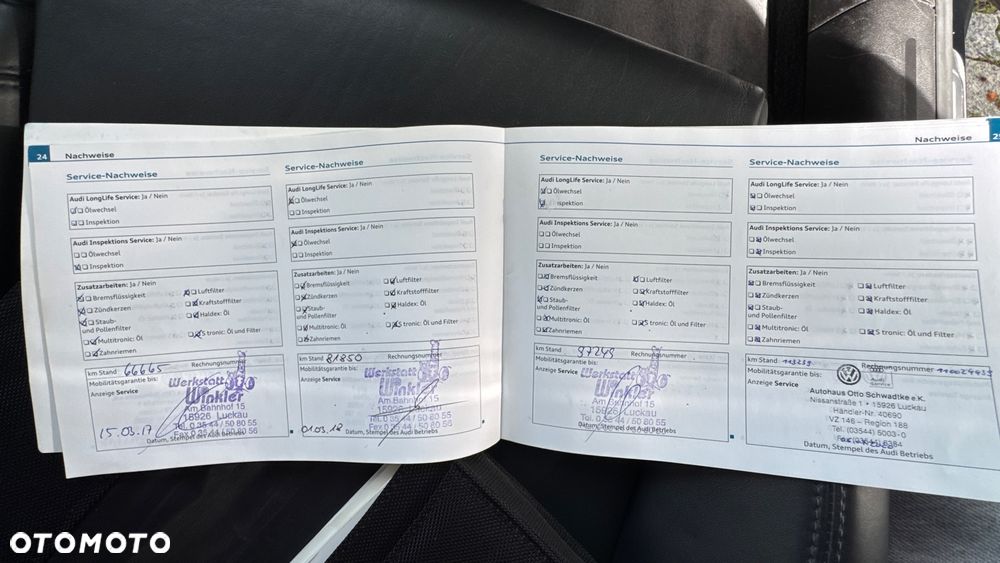 24 Nachweise
Service-Nachweise
Audi LongLife Service: Ja / Nein
Ölwechsel
Inspektion
Audi Inspektions Service: Ja / Nein
Ölwechsel
Inspektion
Zusatzarbeiten: Ja / Nein
Bremsflüssigkeit
Zündkerzen
Staub-
und Pollenfilter
Multitronic: Öl
Zahnriemen
Luftfilter
Kraftstofffilter
Haldex: Öl
S tronic: Öl und Filter
km Stand 66665 Rechnungsnummer
Mobilitätsgarantie bis:
Anzeige Service
Werkstatt
Winkler
Am Bahnhof 15
15926 Luckau
Tel. 0 35 44 / 50 80 55
Fax 0 35 44 / 50 80 56
15.03.17
Datum, Stempel des Audi Betriebs
Service-Nachweise
Audi LongLife Service: Ja / Nein
Ölwechsel
Inspektion
Audi Inspektions Service: Ja / Nein
Ölwechsel
Inspektion
Zusatzarbeiten: Ja / Nein
Bremsflüssigkeit
Zündkerzen
Staub-
und Pollenfilter
Multitronic: Öl
Zahnriemen
Luftfilter
Kraftstofffilter
Haldex: Öl
S tronic: Öl und Filter
km Stand 81850 Rechnungsnummer
Mobilitätsgarantie bis:
Anzeige Service
Werkstatt
Winkler
Am Bahnhof 15
15926 Luckau
Tel. 0 35 44 / 50 80 55
Fax 0 35 44 / 50 80 56
01.03.18
Datum, Stempel des Audi Betriebs
Nachweise 25
Service-Nachweise
Audi LongLife Service: Ja / Nein
Ölwechsel
Inspektion
Audi Inspektions Service: Ja / Nein
Ölwechsel
Inspektion
Zusatzarbeiten: Ja / Nein
Bremsflüssigkeit
Zündkerzen
Staub-
und Pollenfilter
Multitronic: Öl
Zahnriemen
Luftfilter
Kraftstofffilter
Haldex: Öl
S tronic: Öl und Filter
km Stand 97249 Rechnungsnummer
Mobilitätsgarantie bis:
Anzeige Service
Werkstatt
Winkler
Am Bahnhof 15
15926 Luckau
Tel. 0 35 44 / 50 80 55
Fax 0 35 44 / 50 80 56
Datum, Stempel des Audi Betriebs
Service-Nachweise
Audi LongLife Service: Ja / Nein
Ölwechsel
Inspektion
Audi Inspektions Service: Ja / Nein
Ölwechsel
Inspektion
Zusatzarbeiten: Ja / Nein
Bremsflüssigkeit
Zündkerzen
Staub-
und Pollenfilter
Multitronic: Öl
Zahnriemen
Luftfilter
Kraftstofffilter
Haldex: Öl
S tronic: Öl und Filter
km Stand Rechnungsnummer
Mobilitätsgarantie bis:
Anzeige Service
Audi
Service
Autohaus Otto Schwadtke e.K.
Nissanstraße 1 • 15926 Luckau
Händler-Nr. 40690
VZ 146 - Region 188
Tel. (03544) 5003-0
Datum, Stempel des Audi Betriebs
OTOMOTO